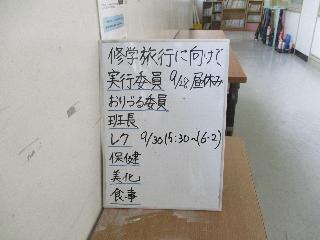 修学旅行に向けて
実行委員 9/28 昼休み
おりづる委員
班長
レク 9/30 15:30~(6-2)
保健
美化
食事